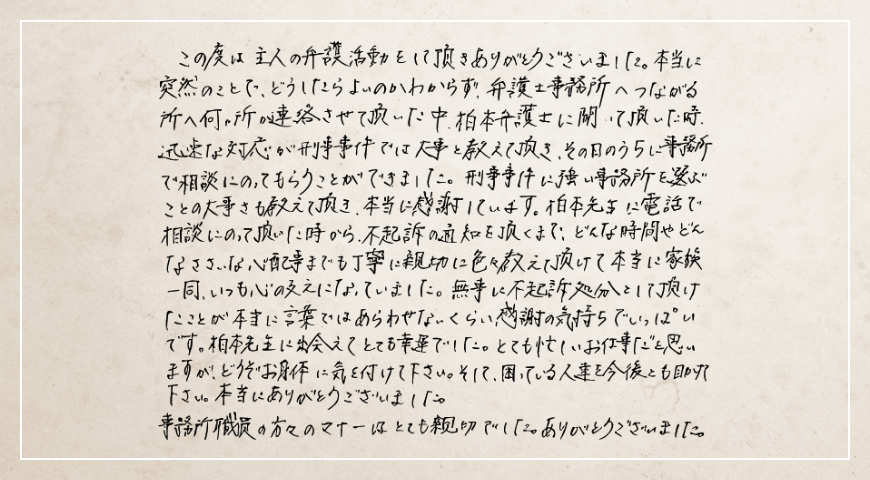 この度は主人の弁護活動をして頂きありがとうございました。本当に
突然のことで、どうしたらよいのかわからず、弁護士事務所へつながる
所へ何ヶ所か連絡させて頂いた中、柏本弁護士に聞いて頂いた時、
迅速な対応が刑事事件では大事と教えて頂き、その日のうちに事務所
で相談にのってもらうことができました。刑事事件に強い事務所を選ぶ
ことの大事さも教えて頂き、本当に感謝しています。柏本先生に電話で
相談にのって頂いた時から、不起訴の通知を頂くまで、どんな時間やどん
なささいな心配事までも丁寧に親切に色々教えて頂けて本当に家族
一同、いつも心の支えになっていました。無事に不起訴処分として頂け
たことが本当に言葉ではあらわせないくらい感謝の気持ちでいっぱい
です。柏本先生に出会えてとても幸運でした。とても忙しいお仕事だと思い
ますが、どうぞお身体に気を付けて下さい。そして、困っている人達を今後とも助けて
下さい。本当にありがとうございました。
事務所職員の方々のマナーはとても親切でした。ありがとうございました。